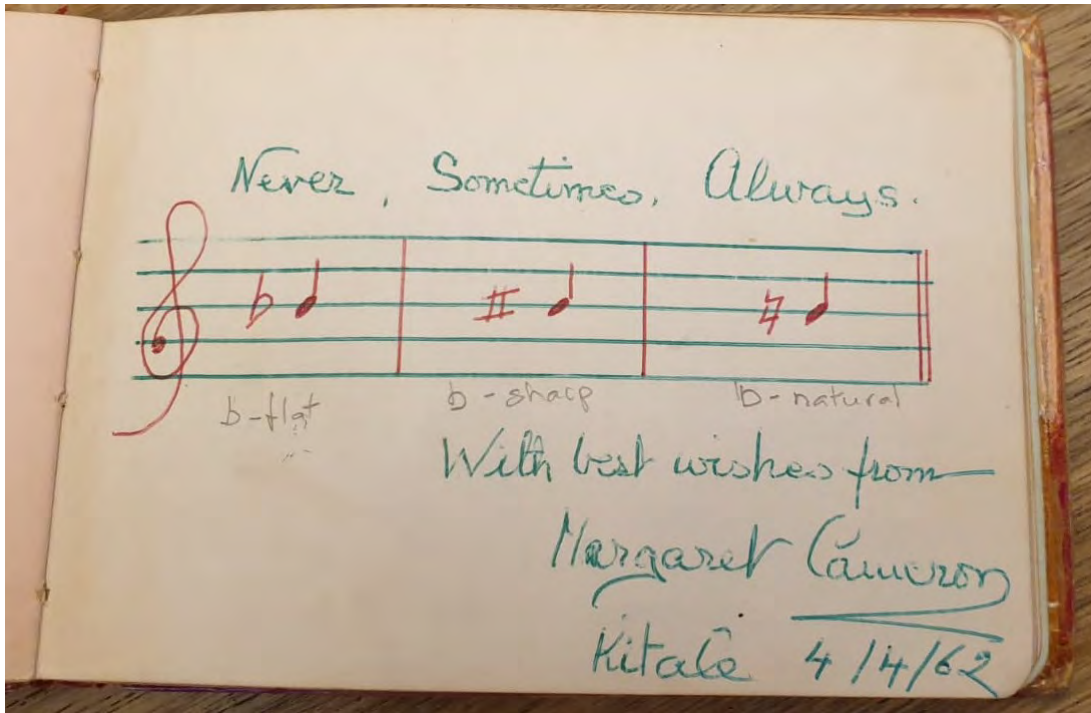 Never, Sometimes, Always.
b-flat b-sharp b-natural
With best wishes from
Margaret Cameron
Kitale 4/4/62